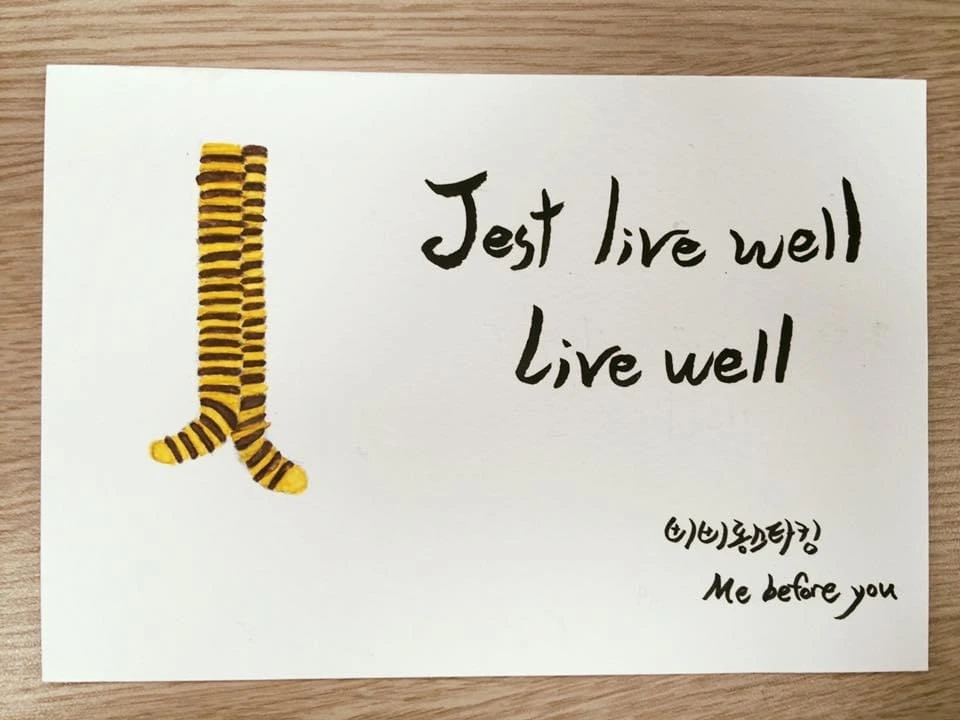 Jest live well
Live well
비비롱스타킹
Me before you